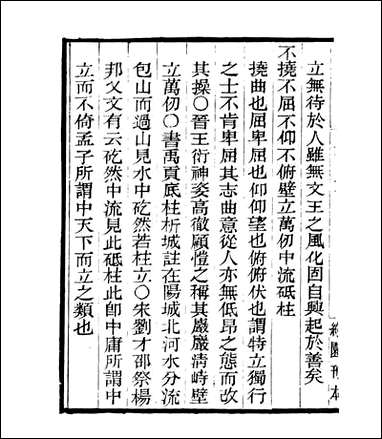 立無待於人雖無文王之風化固自興起於善矣
不撓不屈不仰不俯壁立萬仞中流砥柱
撓曲也屈卑屈也仰仰望也俯俯伏也謂特立獨行
之士不肯卑屈其志曲意從人亦無低昂之態而改
其操○晉王衍神姿高徹顧愷之稱其巖巖清峙壁
立萬仞○書禹貢底柱析城註在陽城北河水分流
包山而過山見水中矻然若柱立○宋劉才邵祭楊
邦乂文有云矻然中流見此砥柱此卽中庸所謂中
立而不倚孟子所謂中天下而立之類也